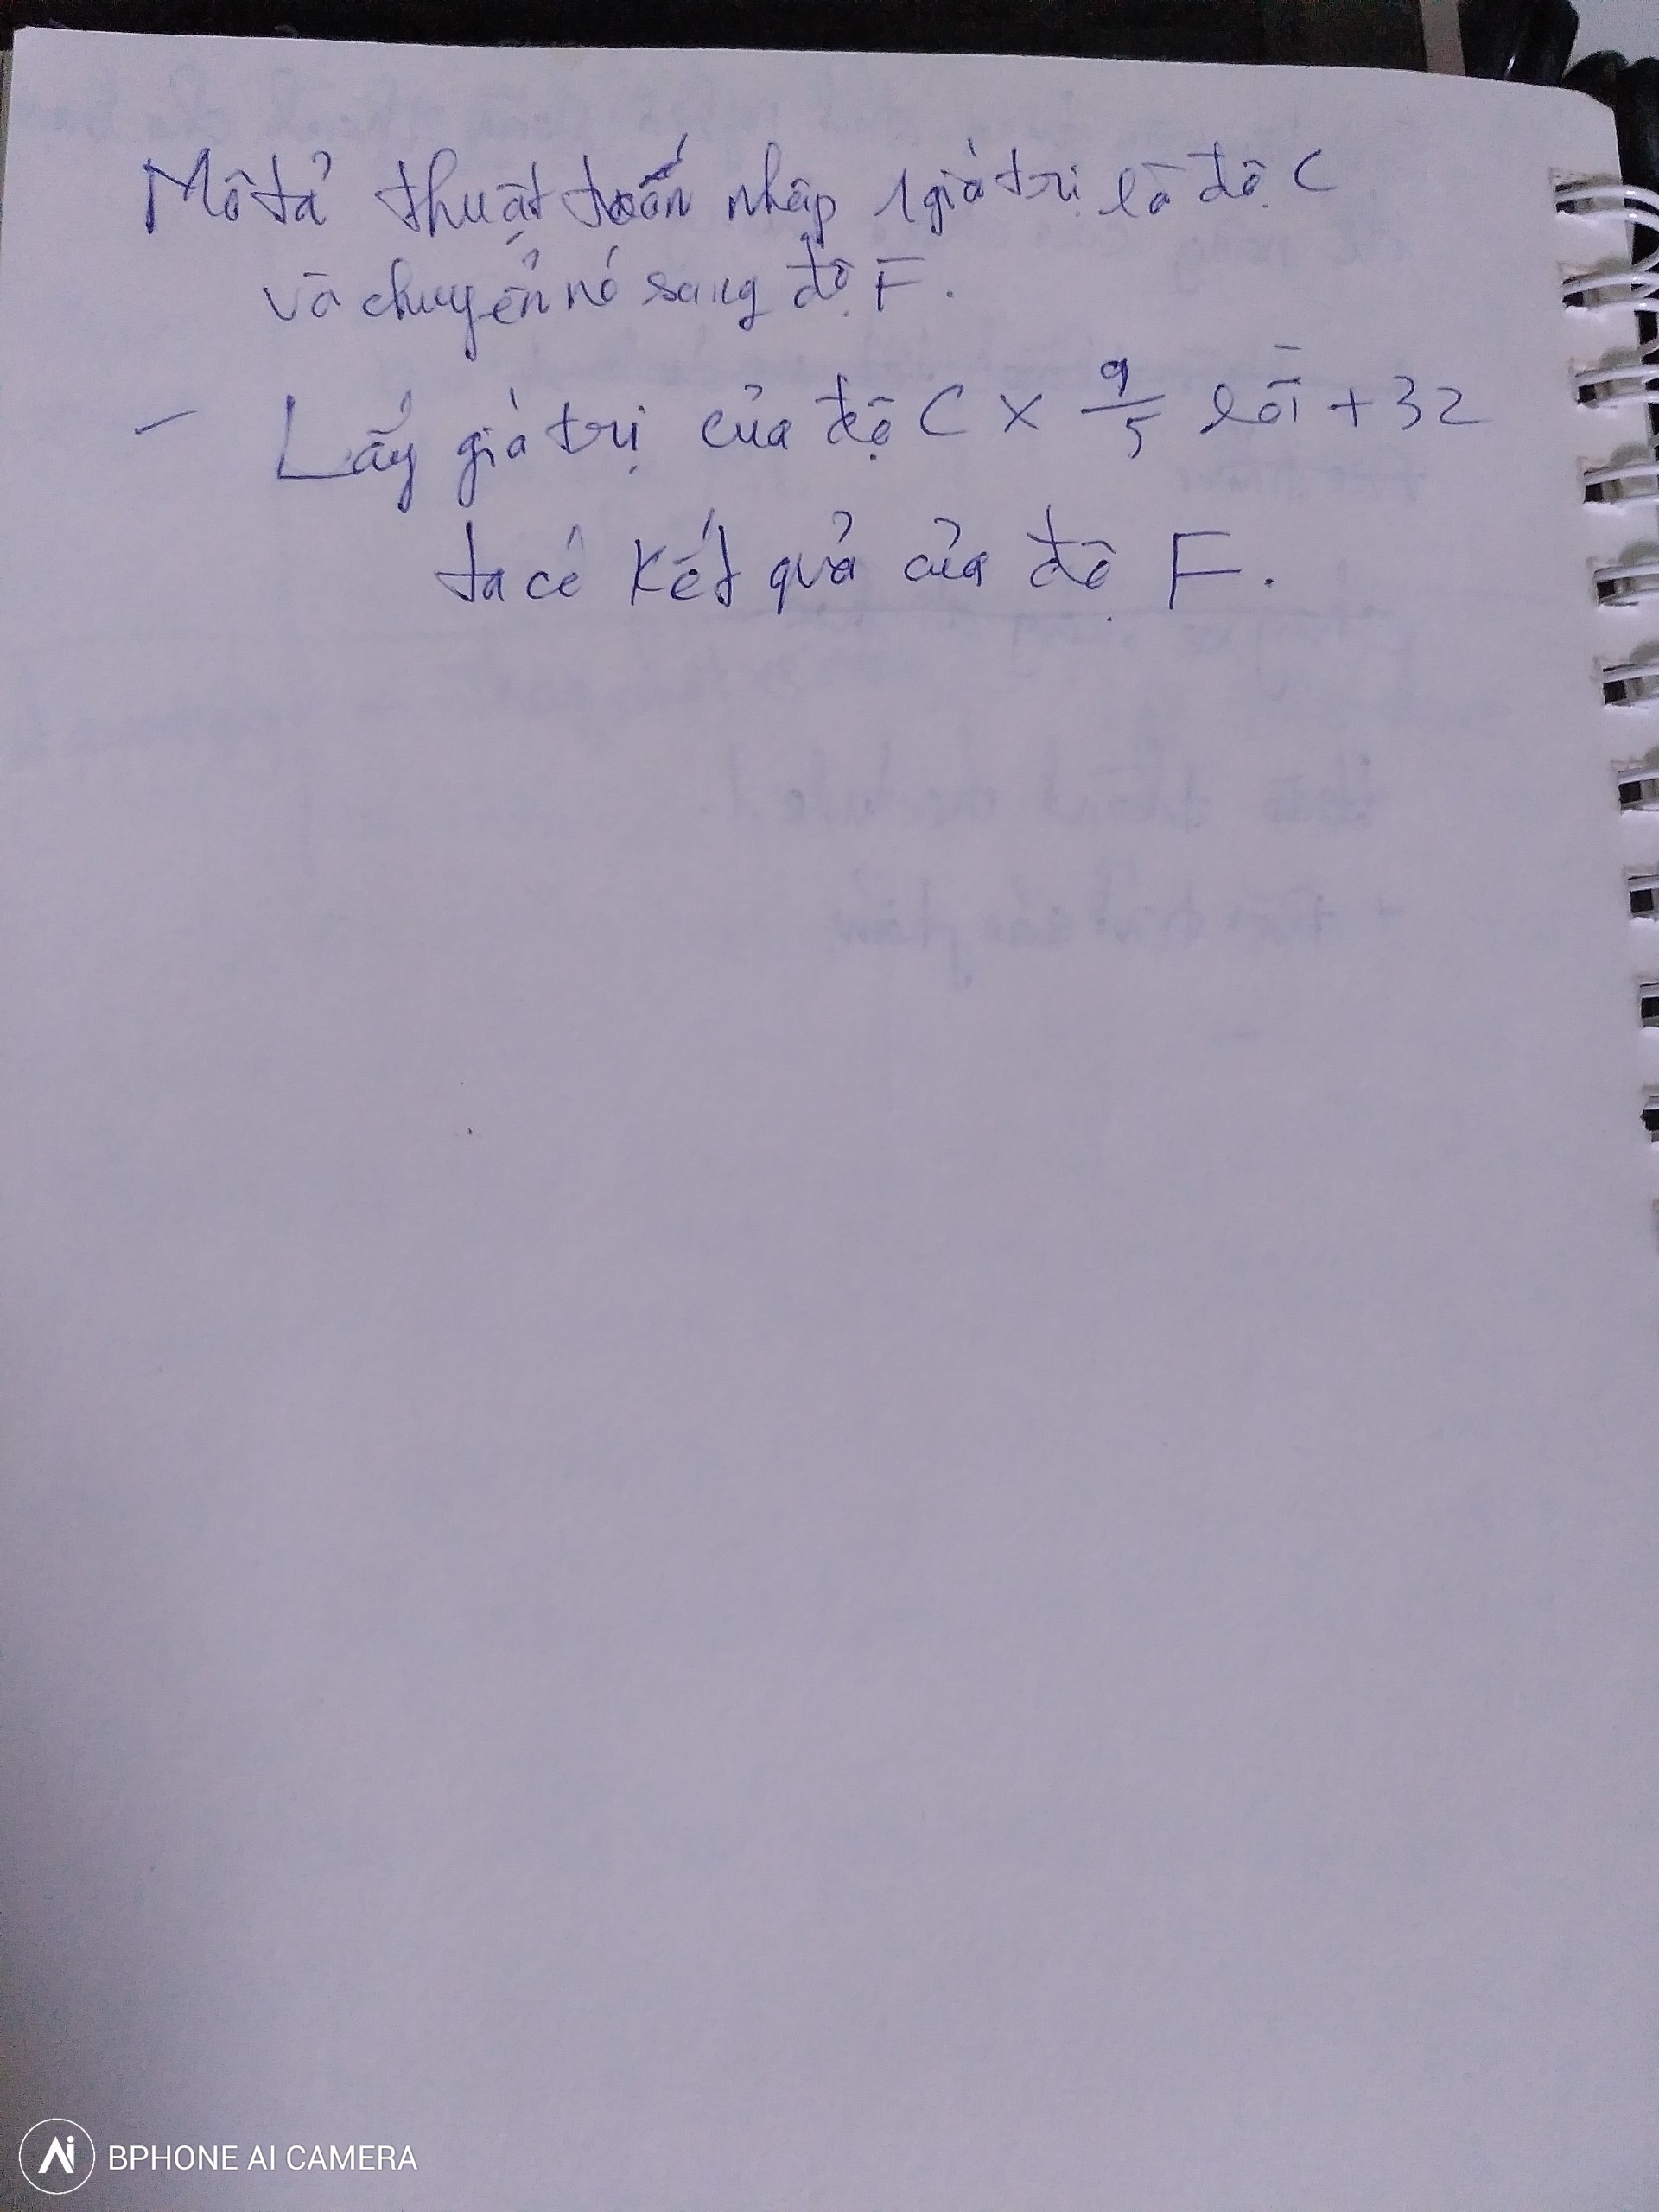 Mô tả thuật toán nhập 1 giá trị là độ C
và chuyển nó sang độ F.
- Lấy giá trị của độ C x 9/5 rồi + 32
ta có kết quả của độ F.
BPHONE AI CAMERA